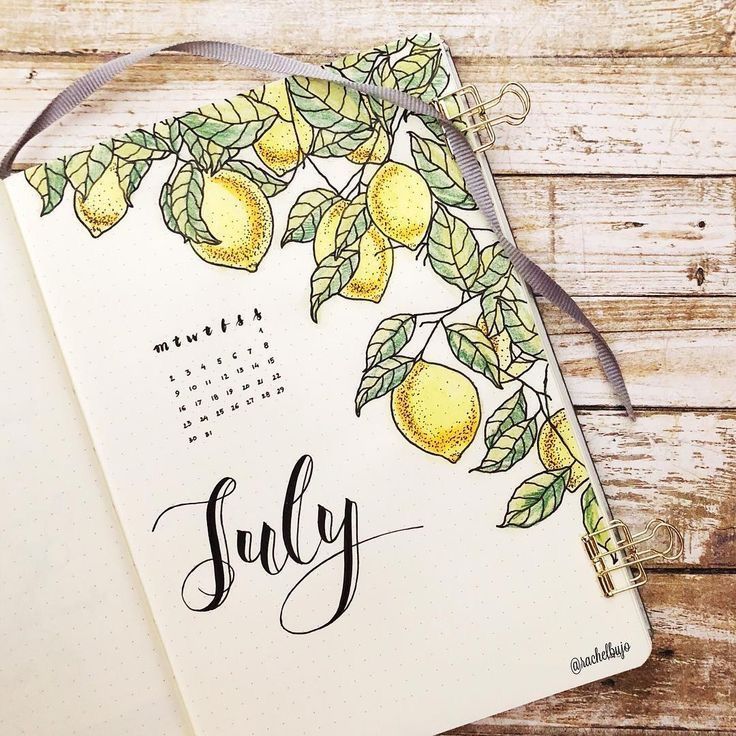 m t w t f s s
1
2 3 4 5 6 7 8
9 10 11 12 13 14 15
16 17 18 19 20 21 22
23 24 25 26 27 28 29
30 31
July
@rachelbujo